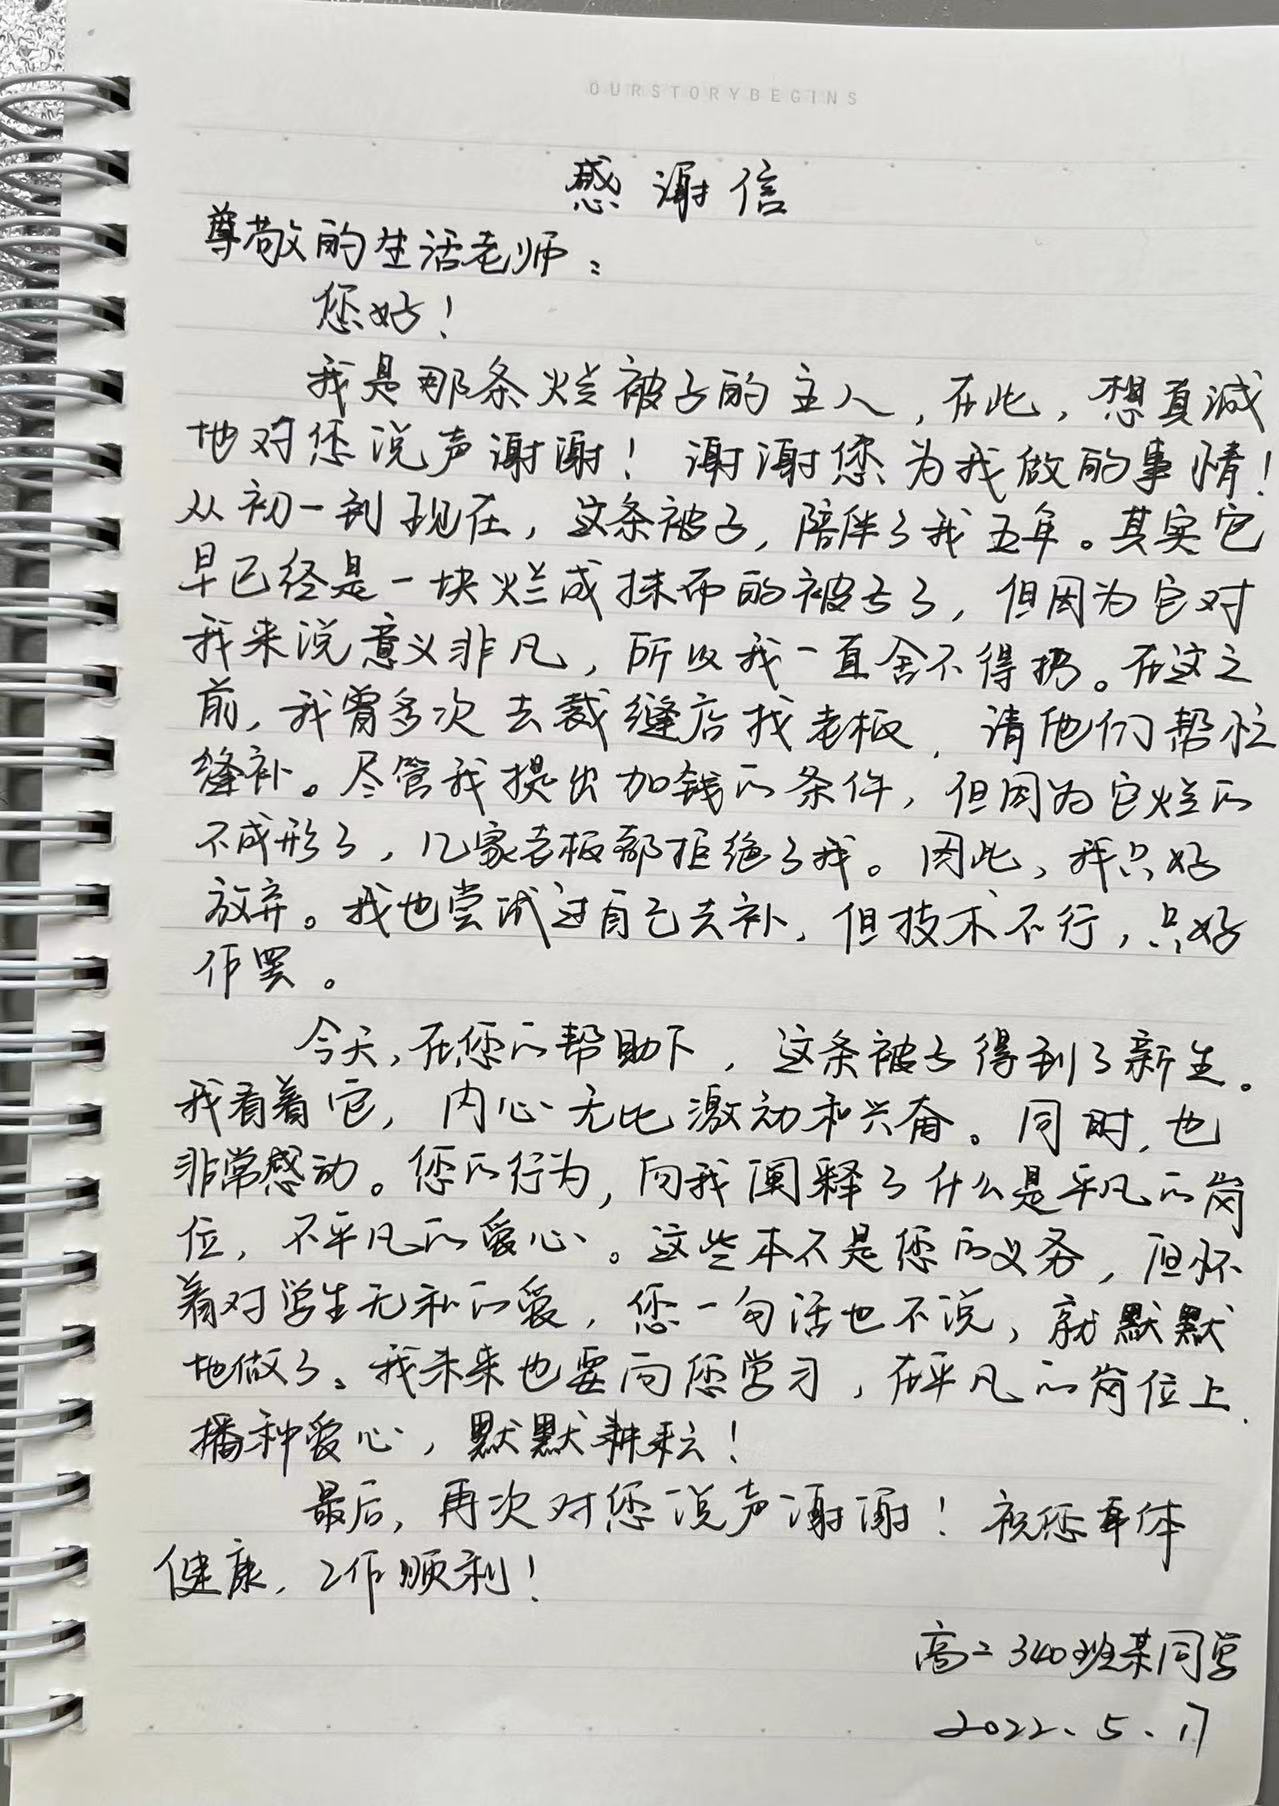 OURSTORYBEGINS
感谢信
尊敬的生活老师：
您好！
我是那条烂被子的主人，在此，想真诚
地对您说声谢谢！谢谢您为我做的事情！
从初一到现在，这条被子，陪伴了我五年。其实它
早已经是一块烂成抹布的被子了，但因为它对
我来说意义非凡，所以我一直舍不得扔。在这之
前，我曾多次去裁缝店找老板，请他们帮忙
缝补。尽管我提出加钱的条件，但因为它烂的
不成形了，几家老板都拒绝了我。因此，我只好
放弃。我也尝试过自己去补，但技术不行，只好
作罢。
今天，在您的帮助下，这条被子得到了新生。
我看着它，内心无比激动和兴奋。同时，也
非常感动。您的行为，向我阐释了什么是平凡的岗
位，不平凡的爱心。这些本不是您的义务，但怀
着对学生无私的爱，您一句话也不说，就默默
地做了。我未来也要向您学习，在平凡的岗位上，
播种爱心，默默耕耘！
最后，再次对您说声谢谢！祝您身体
健康，工作顺利！
高二340班某同学
2022、5、17